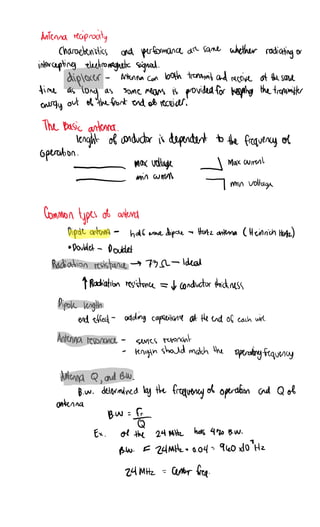 Antenna reciprocity
Characteristics and performance are same whether radiating or
intercepting electromagnetic signal.
diplexer - Antenna can both transmit and receive at the same
time as long as some means is provided for keeping the transmitter
energy out of the front end of receiver.
The Basic antenna.
lenght of conductor is dependent to the frequency of
operation.
max voltage Max current
min current min voltage
Common types of antenna
Dipole antenna - half wave dipole - Hertz antenna (Heinrich Hertz)
* Doublet - Doublet
Radiation resistance → 73 Ω - Ideal
↑ Radiation resistance = ↓ conductor thickness
Dipole length
end effect - adding capacitance at the end of each
Antenna resonance - series resonant
- length should match the operating frequency
Antenna Q, and B.w.
B.w. determined by the frequency of operation and Q of
antenna
BW = fr
Q
Ex. of the 24 MHz has 4% B.w.
B.w. = 24MHz × 0.04 = 960 x10³ Hz
24 MHz = Center freq.